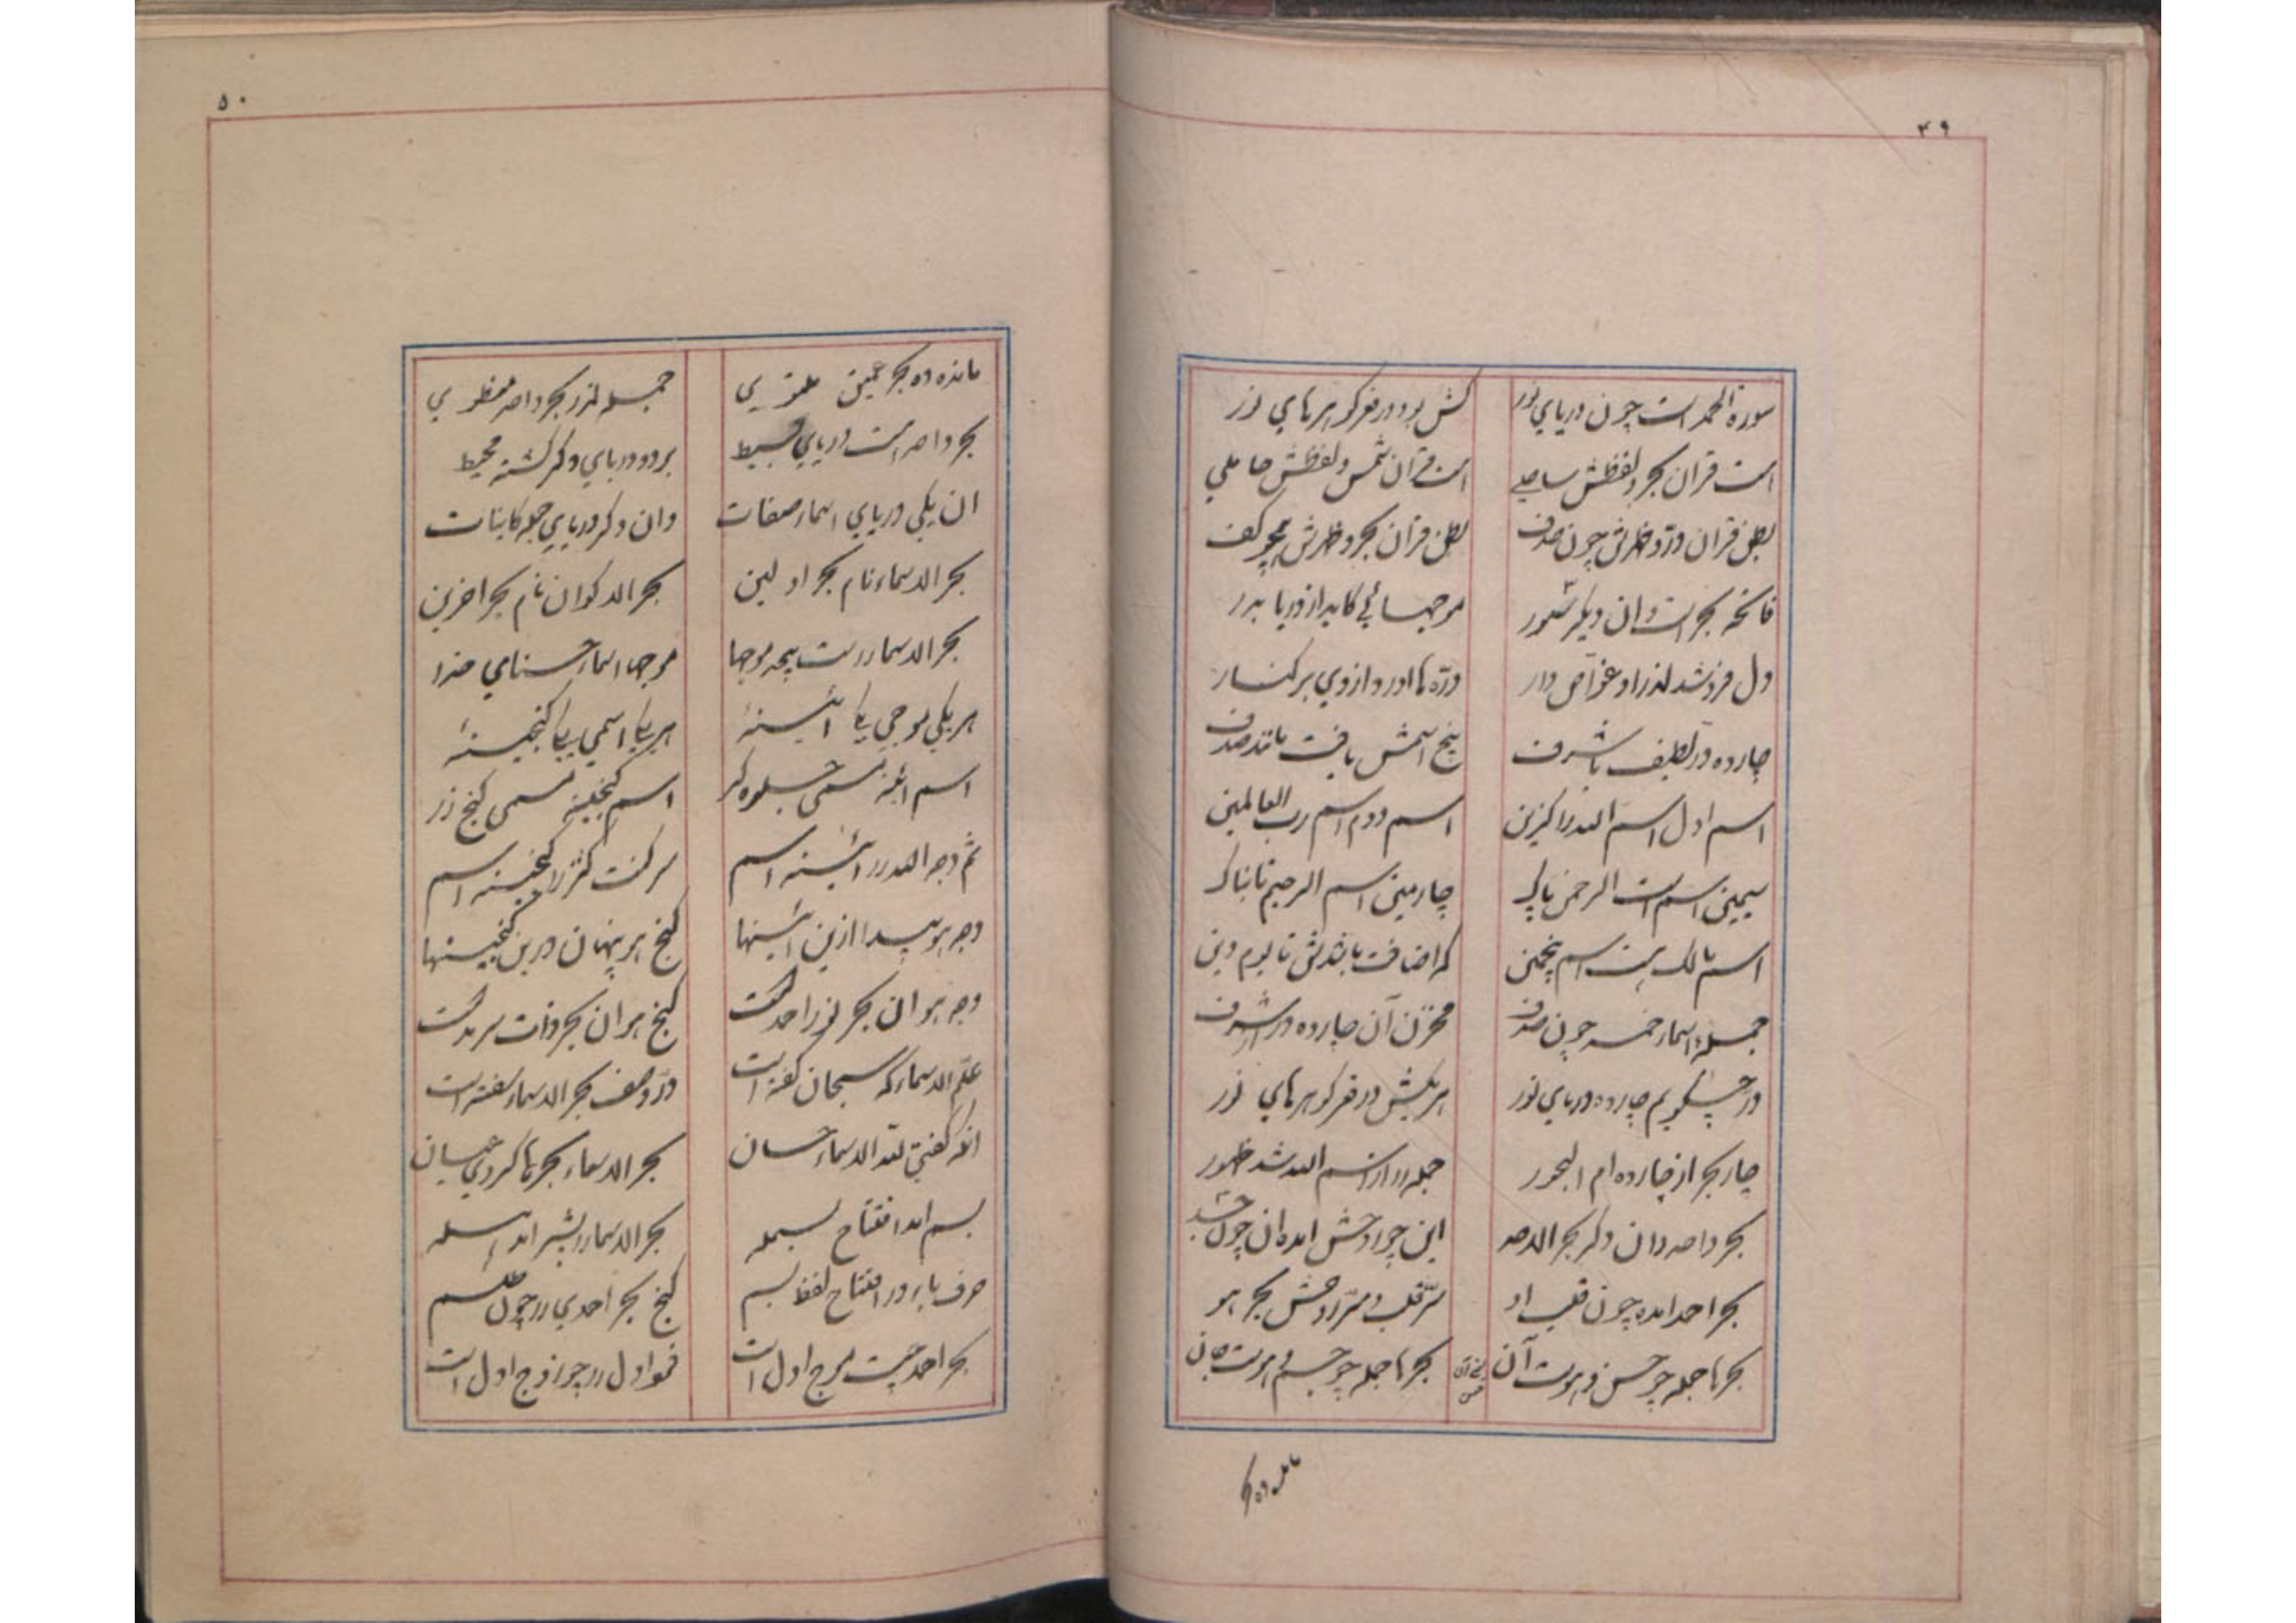 ۴۹
سورة الحمد است چون دریای نور
کش بود در قعر گوهرهای نور
است قران بحر و لفظش ساحلی
است قرآن شمس و لفظش حاملی
بطن قران در و ظهرش چون صدف
بطن قران بحر و ظهرش همچو کف
فاتحه بحر است وان دیگر سور
موجهائی کاید از دریا بدر
دل فروشد اندر او غواص وار
درّه‌ها اورد از وی بر کنار
چارده در لطیف با شرف
پنج اسمش یافت مانند صدف
اسم اول اسم الله را گزین
اسم دوم اسم رب العالمین
سیمین اسم است الرحمن پاک
چارمین اسم الرحیم تابناک
اسم مالک هست اسم پنجمین
کاضافت باشدش تا یوم دین
جمله اسماء خمسه چون صدف
مخزن آن چارده در شرف
در چه گویم چارده دریای نور
هر یکش در قعر گوهرهای نور
چار بحر از چارده ام البحور
جمله را از اسم الله شد ظهور
بحر واحد دان دگر بحر الاحد
این چو روحش امده ان چون جسد
بحر احمد امده چون قلب او
سرّ قلب و سرّ روحش بحر هو
بحرها جمله چو حسن و هوست آن
بحرها جمله چو جسم و هوست جان
مانده ده بحر
۵۰
مانده ده بحر عمیق ملتوی
جمله اندر بحر واحد منطوی
بحر واحد هست دریای بسیط
بر دو دریای دگر گشته محیط
ان یکی دریای اسماء صفات
وان دگر دریای جمله کاینات
بحر الاسماء نام بحر اولین
بحر الاکوان نام بحر اخرین
بحر الاسماء راست بیحد موجها
موجها اسماء حسنای خدا
هر یکی موجی یکا ائینهٔ
هر یکا اسمی یکا گنجینهٔ
اسم ائینه مسمی جلوه گر
اسم گنجینه مسمی گنج زر
ثم وجه الله در ائینه اسم
سر کنت کنز در گنجینه اسم
وجه هو پیدا ازین ائینها
گنج هو پنهان درین گنجینها
وجه هو ان بحر نور احمد است
گنج هو ان بحر ذات سرمد است
علّم الاسماء که سبحان گفته است
در وصف بحر الاسماء سفته است
انکه گفتی لله الاسماء حسان
بحر الاسماء بحرها کردی عیان
بسم الله افتتاح بسمله
بحر الاسماء را بشیر
حرف باء در افتتاح لفظ بسم
گنج بحر احمدی را چون طلسم
بحر احمد چیست موج اول است
اول را چو زوج اول است